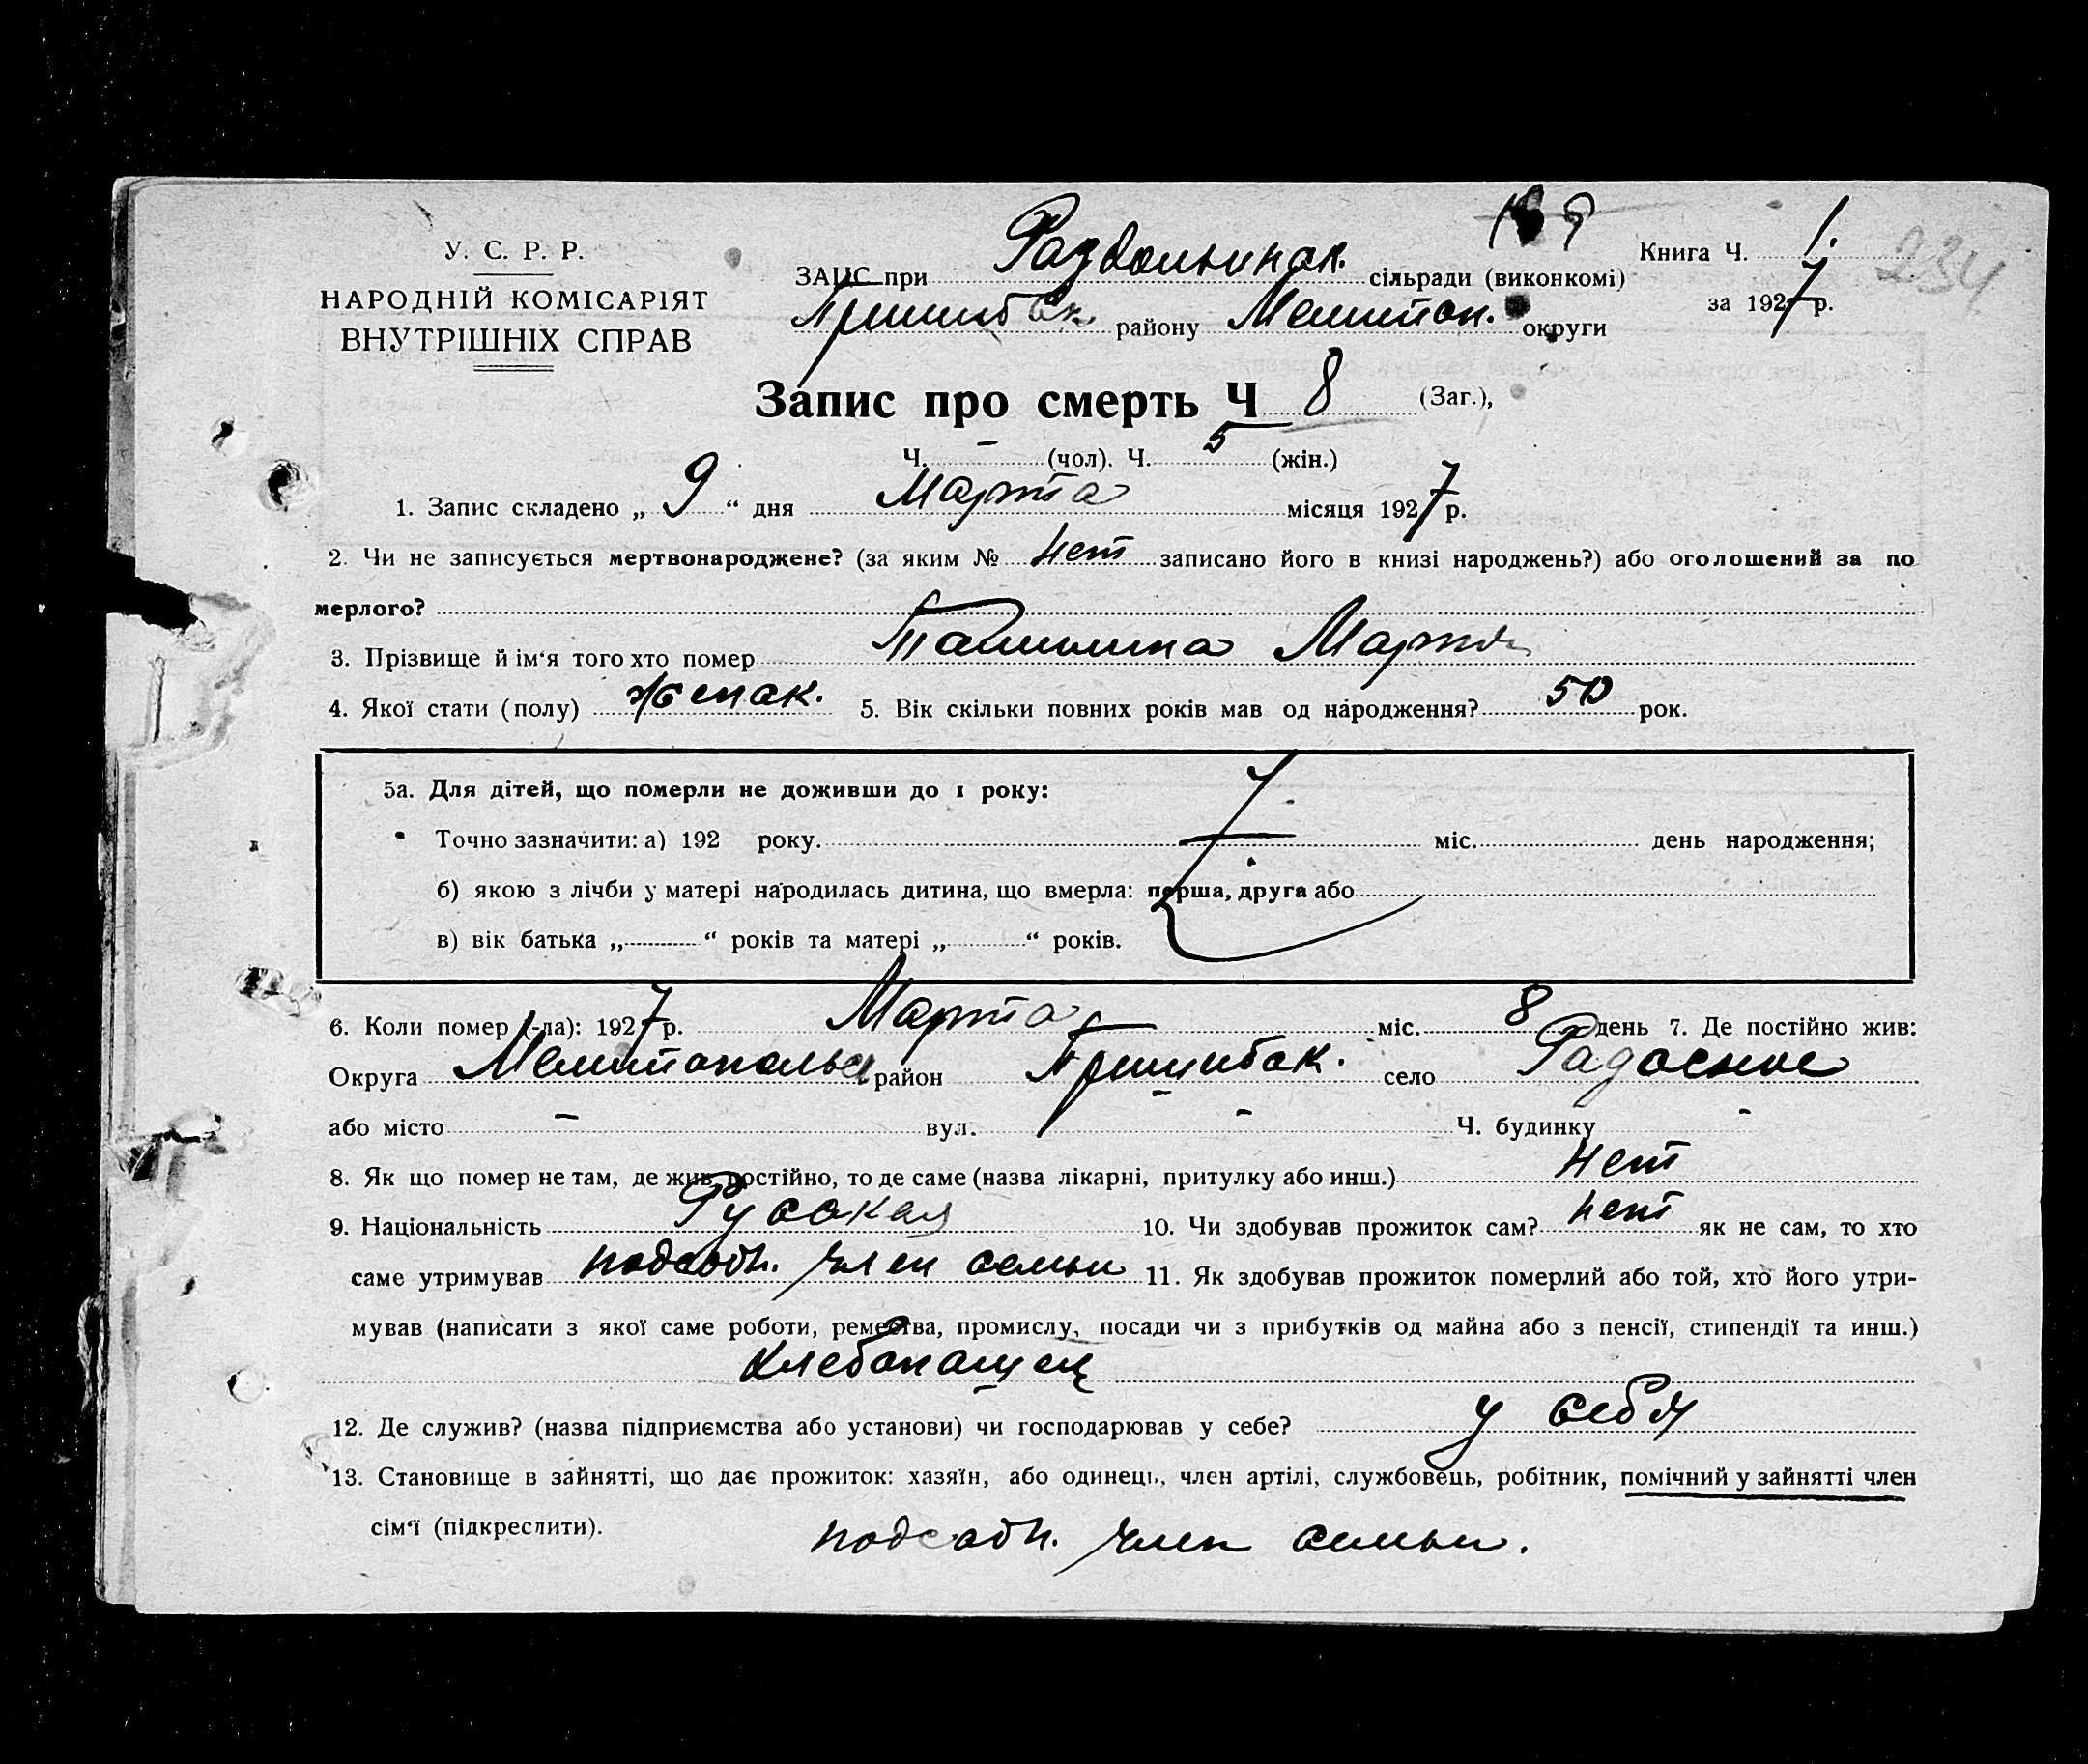 У. С. Р. Р.
НАРОДНІЙ КОМІСАРІЯТ
ВНУТРІШНІХ СПРАВ
ЗАЦС при Раздольннск. сільради (виконкомі)
Пришибск району Мелитоп. округи
Книга Ч. 1.
за 1927 р.
234
Запис про смерть Ч 8 (Заг.),
Ч. – (чол). Ч. 5 (жін.)
1. Запис складено „ 9 “ дня Марта місяця 1927 р.
2. Чи не записується мертвонароджене? (за яким № нет записано його в книзі народжень?) або оголошений за по
мерлого?
3. Прізвище й ім‘я того хто помер Марта
4. Якої стати (полу) женск. 5. Вік скільки повних років мав од народження? 50 рок.
5а. Для дітей, що померли не доживши до 1 року:
Точно зазначити: а) 192 року. міс. день народження;
б) якою з лічби у матері народилась дитина, що вмерла: перша, друга або
в) вік батька „ “ років та матері „ “ років.
6. Коли помер (-ла): 1927 р. Марта міс. 8 день 7. Де постійно жив:
Округа Мелитопольск район Пришибск. село Радосное
або місто – вул. – Ч. будинку –
8. Як що помер не там, де жив постійно, то де саме (назва лікарні, притулку або инш.) нет
9. Національність Русская 10. Чи здобував прожиток сам? нет як не сам, то хто
саме утримував подсобн. член семьи 11. Як здобував прожиток померлий або той, хто його утри-
мував (написати з якої саме роботи, ремества, промислу, посади чи з прибутків од майна або з пенсії, стипендії та инш.)
хлебопащец
12. Де служив? (назва підприємства або установи) чи господарював у себе? у себя
13. Становище в зайнятті, що дає прожиток: хазяїн, або одинець, член артілі, службовець, робітник, помічний у зайнятті член
сім‘ї (підкреслити). подсобн. член семьи.